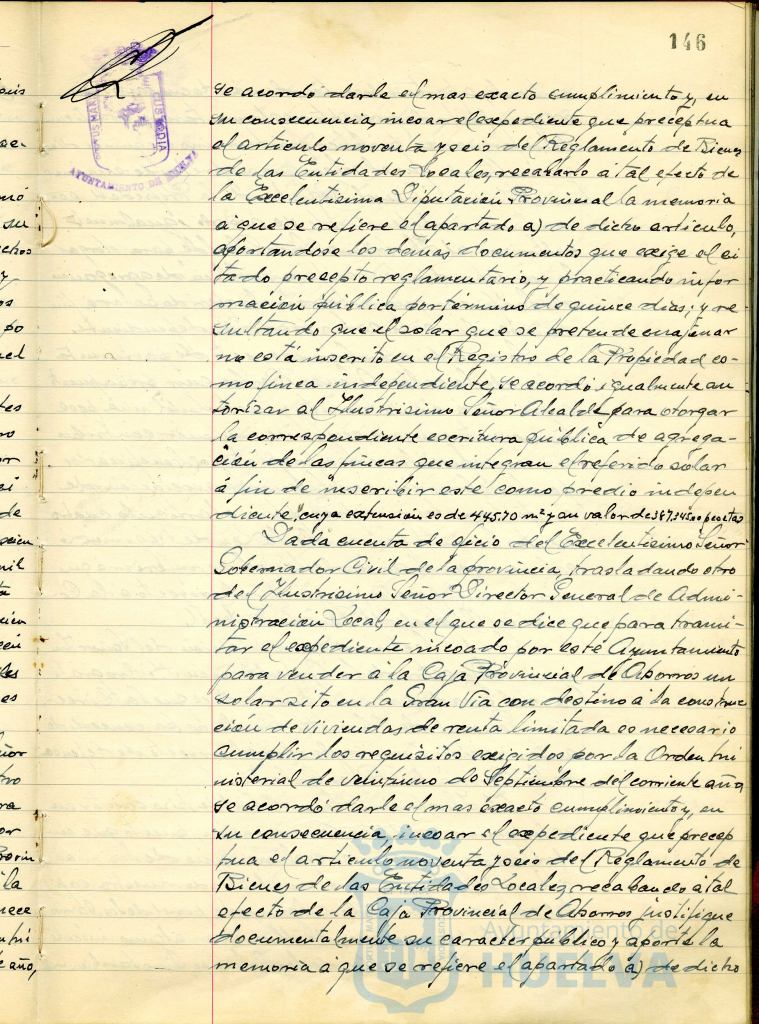 146
AYUNTAMIENTO DE HUELVA
se acordó darle el mas exacto cumplimiento y, en
su consecuencia, incoar el expediente que preceptua
el articulo noventa y seis del Reglamento de Bienes
de las Entidades Locales, recabando á tal efecto de
la Excelentisima Diputación Provincial la memoria
á que se refiere el apartado a) de dicho articulo,
aportandose los demás documentos que exige el ci
tado precepto reglamentario, y practicando infor
mación pública por término de quince dias; y re
sultando que el solar que se pretende enajenar
no está inscrito en el Registro de la Propiedad co-
mo finca independiente, se acordó igualmente au
torizar al Ilustrisimo Señor Alcalde para otorgar
la correspondiente escritura pública de agrega-
ción de las fincas que integran el referido solar
á fin de inscribir este como predio indepen
diente, cuya extensión es de 445.70 m² y un valor de pesetas
Dada cuenta de oficio del Excelentisimo Señor
Gobernador Civil de la provincia, trasladando otro
del Ilustrisimo Señor Director General de Admi-
nistración Local, en el que se dice que para trami
tar el expediente incoado por este Ayuntamiento
para vender á la Caja Provincial de Ahorros un
solar sito en la Gran Via con destino á la construc
ción de viviendas de renta limitada es necesario
cumplir los requisitos exigidos por la Orden mi
nisterial de veintiuno de Septiembre del corriente año,
se acordó darle el mas exacto cumplimiento y, en
su consecuencia, incoar el expediente que precep
tua el articulo noventa y seis del Reglamento de
Bienes de las Entidades Locales, recabando á tal
efecto de la Caja Provincial de Ahorros justifique
documentalmente su caracter público y aporte la
memoria á que se refiere el apartado a) de dicho
Ayuntamiento de
HUELVA